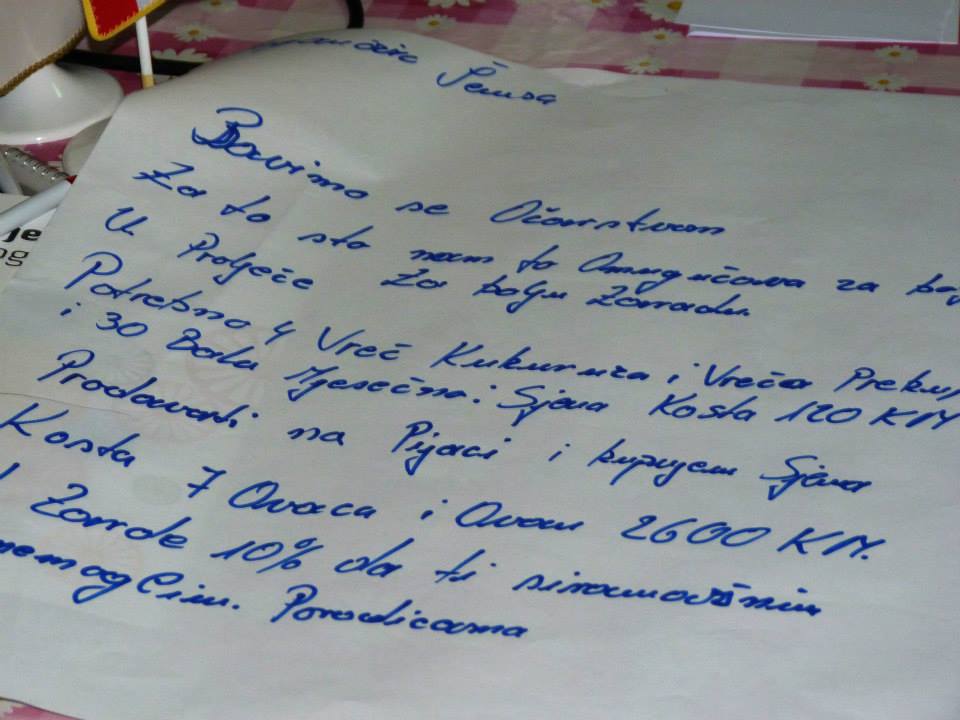 Šemsa
Bavimo se Očarstvom
Za to sto nam to Omugučava za bo
U Proljeće za bolju Zaradu.
Potrebno 4 Vreć Kukuruza i Vreća Preku
i 30 Bala Mjesečno. Sjeno Kosta 120 KM
Prodavati na Pijaci i kupujem Sjeno
Kosta 7 Ovaca i Ovan 2600 KM.
Zarde 10% da ti siromošnim
nemoglim. Porodicama
je
og